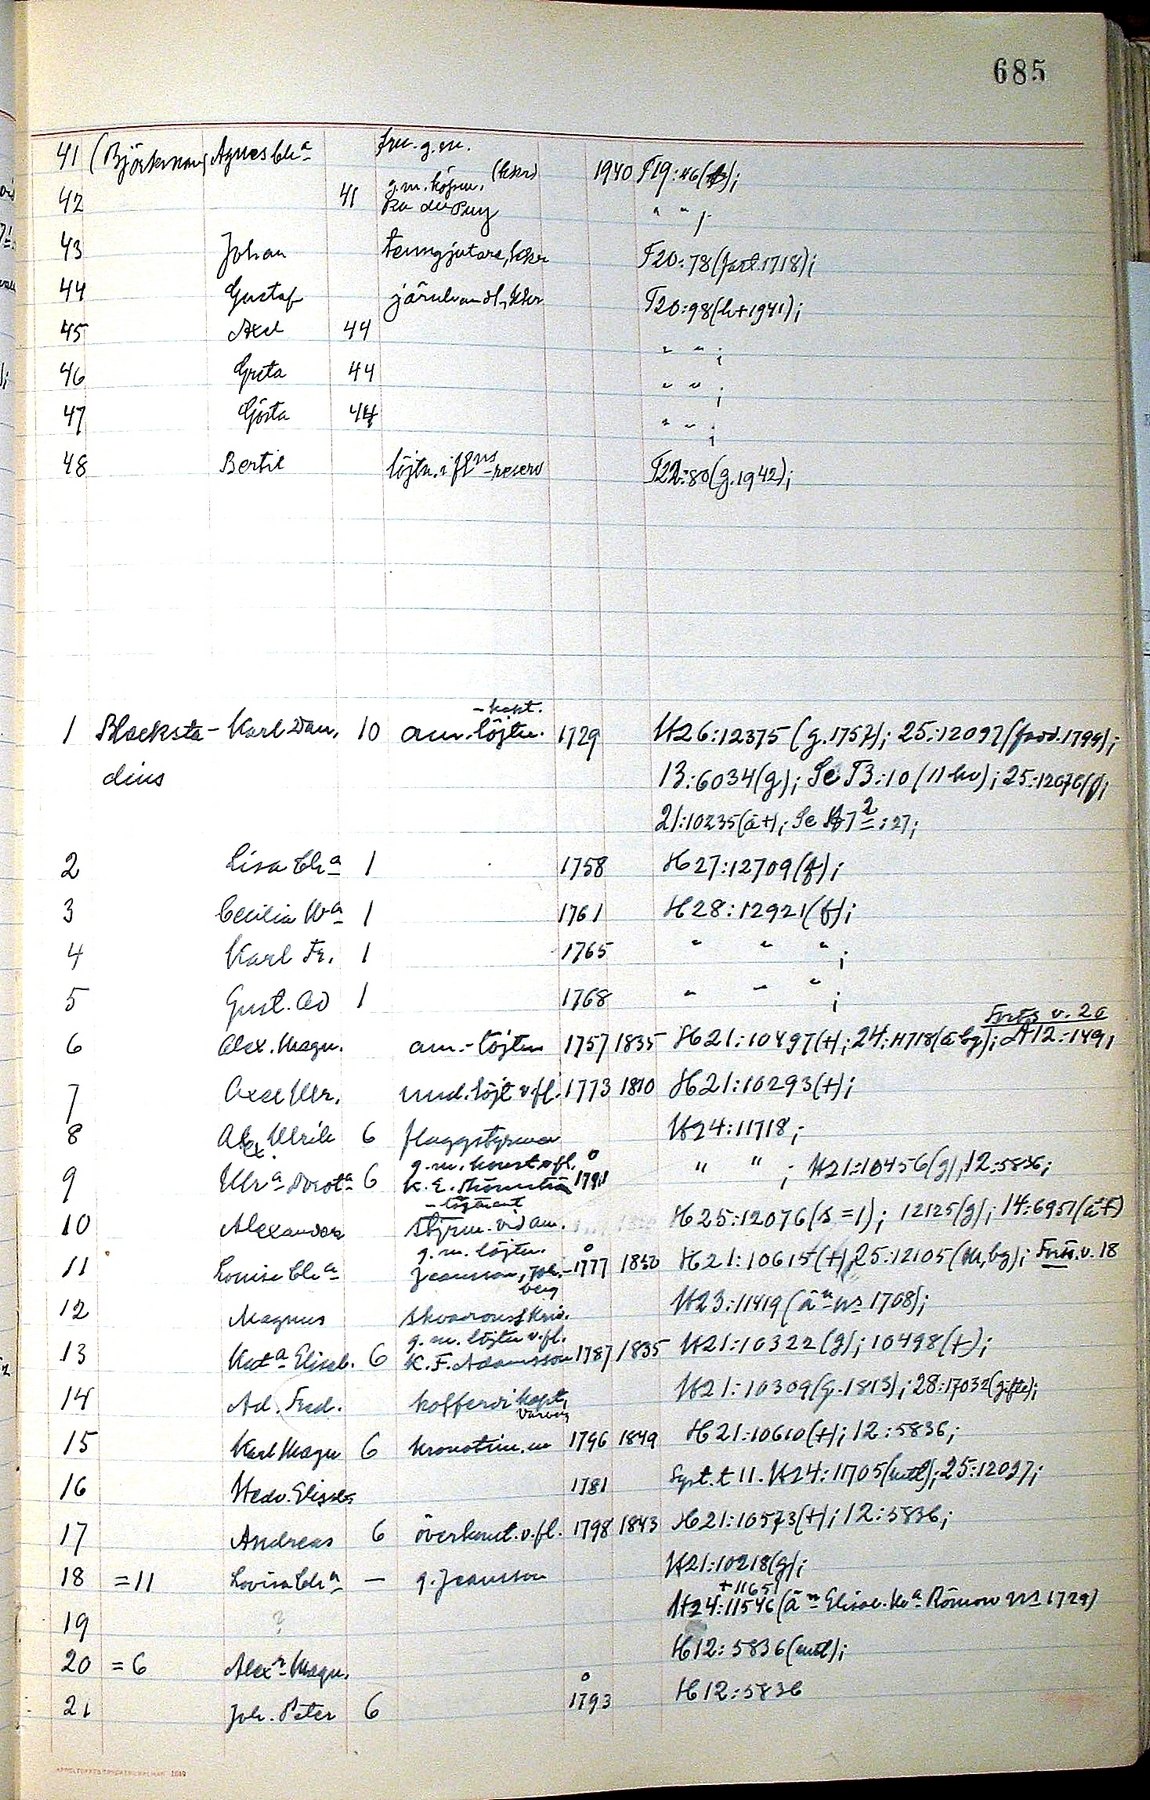 685
41 (Björkman, Agnes Cha fru. g.m. 1940 T19:46( );
42 41 g.m. köpm. (kkr)
" " ;
43 Johan tenngjutare, kkr T20:78(fört.1718);
44 Gustaf järnhandl, kkr T20:98(h+1941);
45 Axel 44 " " ;
46 Greta 44 " " ;
47 Gösta 44 " " ;
48 Bertil löjtn. i flns reserv T22:80(g.1942);
-kapt.
1 Blocksta- Karl Dan. 10 am.-löjtn. 1729 H26:12375(g.1757); 25:12097( 1794);
dius 13:6034(g); Se T3:10(11 ); 25:12076(f);
21:10235(ä+); Se 2:27;
2 Lisa Cha 1 1758 H27:12709(f);
3 Cecilia Ma 1 1761 H28:12921(f);
4 Karl Fr. 1 1765 " " " ;
5 Gust. Ad 1 1768 " " " ;
Forts v. 20
6 Alex. Magn. am.-löjtn 1757 1835 H21:10497(+); 24:11718(ä bg); A12:149,
7 Axel Ulr. und.löjt v.fl. 1773 1810 H21:10293(+);
8 Alex. Ulrik 6 flaggstyrman H24:11718;
9 Ulra Dorota 6 g.m. konst v fl. 1791 " " ; H21:10456(g); 12:5836;
K. E.
-löjtnant
10 Alexander styrm. vid am. H25:12076(s=1); 12125(g); 14:6951(ä+)
11 Louisa Cha g.m. löjtn. 1777 1850 H21:10615(+), 25:12105( , bg); Forts. v. 18
Jeansson,
12 Magnus H23:11419(än nr 1708);
13 Kata Elisab. 6 g.m. löjtn v.fl. 1787 1835 H21:10322(g); 10498(+);
K. F. Adamsson
14 Ad. Fred. kofferdikapt, H21:10309(g.1813); 28:17032(gifte);
Varvsg
15 Karl Magn 6 1796 1849 H21:10610(+); 12:5836;
16 Hedv. Elisab 1781 Syst. t 11. H24:11705( ); 25:12097;
17 Andreas 6 överkonst. v. fl. 1798 1843 H21:10573(+); 12:5836;
18 =11 Lovisa Cha — g. Jeansson H21:10218(g);
+11651
19 ? H24:11546(än Elisab. Ka Römon nr 1729)
20 =6 Alexr Magn. H12:5836( );
21 Joh. Peter 6 1793 H12:5836